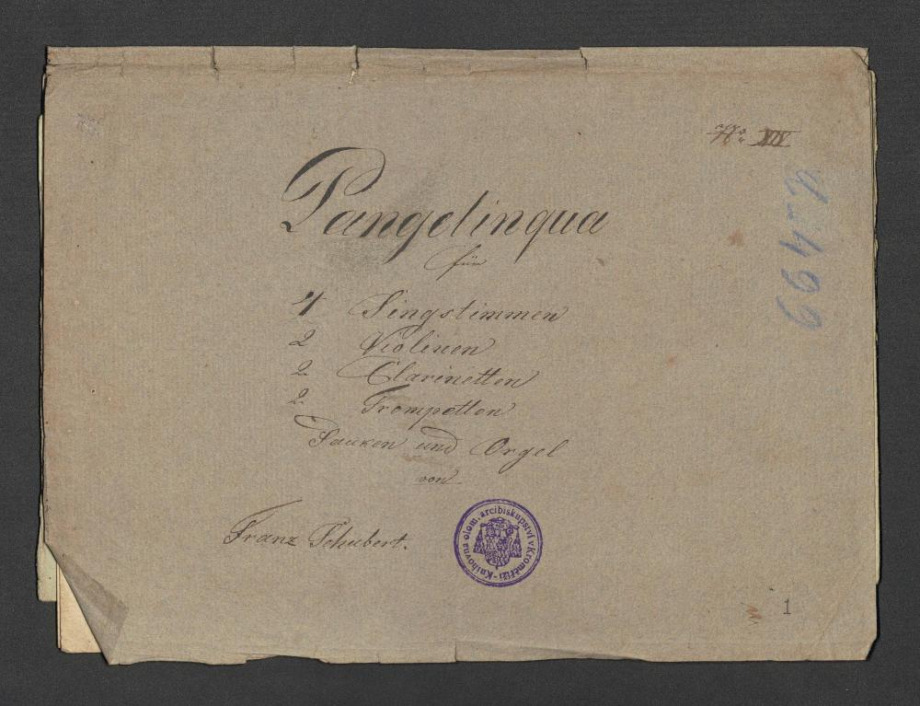 No. XIX
Pangelinqua
für
4 Singstimmen
2 Violinen
2 Clarinetten
2 Trompetten
Pauken und Orgel
von
Franz Schubert.
Knihovna olom. arcibiskupství v Kroměříži
1